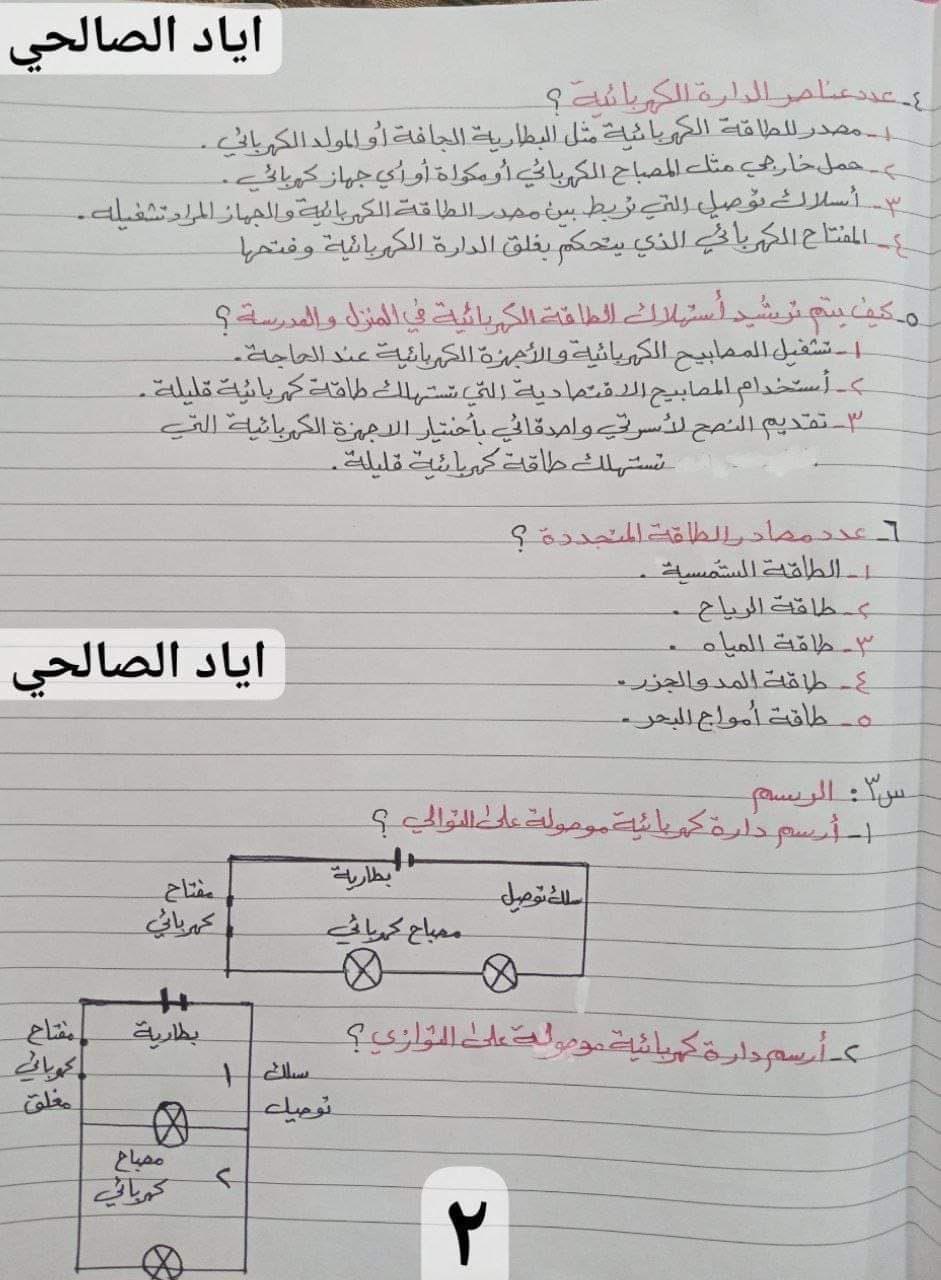 اياد الصالحي
٤- عدد عناصر الدارة الكهربائية ؟
١- مصدر للطاقة الكهربائية مثل البطارية الجافة أو المولد الكهربائي .
٢- حمل خارجي مثل المصباح الكهربائي أو مكواة أو أي جهاز كهربائي .
٣- أسلاك توصيل التي تربط بين مصدر الطاقة الكهربائية والجهاز المراد تشغيله .
٤- المفتاح الكهربائي الذي يتحكم بغلق الدارة الكهربائية وفتحها
٥- كيف يتم ترشيد أستهلاك الطاقة الكهربائية في المنزل والمدرسة ؟
١- تشغيل المصابيح الكهربائية والأجهزة الكهربائية عند الحاجة .
٢- أستخدام المصابيح الاقتصادية التي تستهلك طاقة كهربائية قليلة .
٣- تقديم النصح لأسرتي واصدقائي بأختيار الاجهزة الكهربائية التي
تستهلك طاقة كهربائية قليلة .
٦- عدد مصادر الطاقة المتجددة ؟
١- الطاقة الشمسية .
٢- طاقة الرياح .
٣- طاقة المياه .
اياد الصالحي
٤- طاقة المد والجزر .
٥- طاقة أمواج البحر .
س٣ : الرسم
١- أرسم دارة كهربائية موصولة على التوالي ؟
بطارية
سلك توصيل
مفتاح
كهربائي
مصباح كهربائي
٢- أرسم دارة كهربائية موصولة على التوازي ؟
بطارية
مفتاح
كهربائي
مغلق
١
سلك
توصيل
مصباح
كهربائي
٢
٢